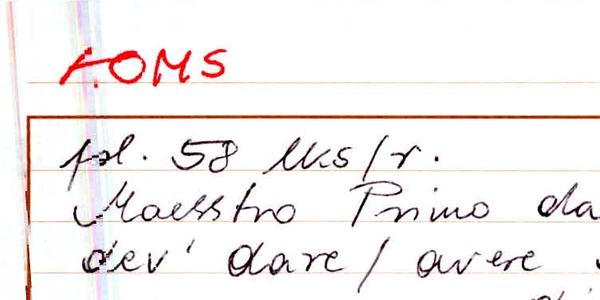 AOMS
fol. 58 lks/r.
Maesstro Primo da
dev' dare / avere